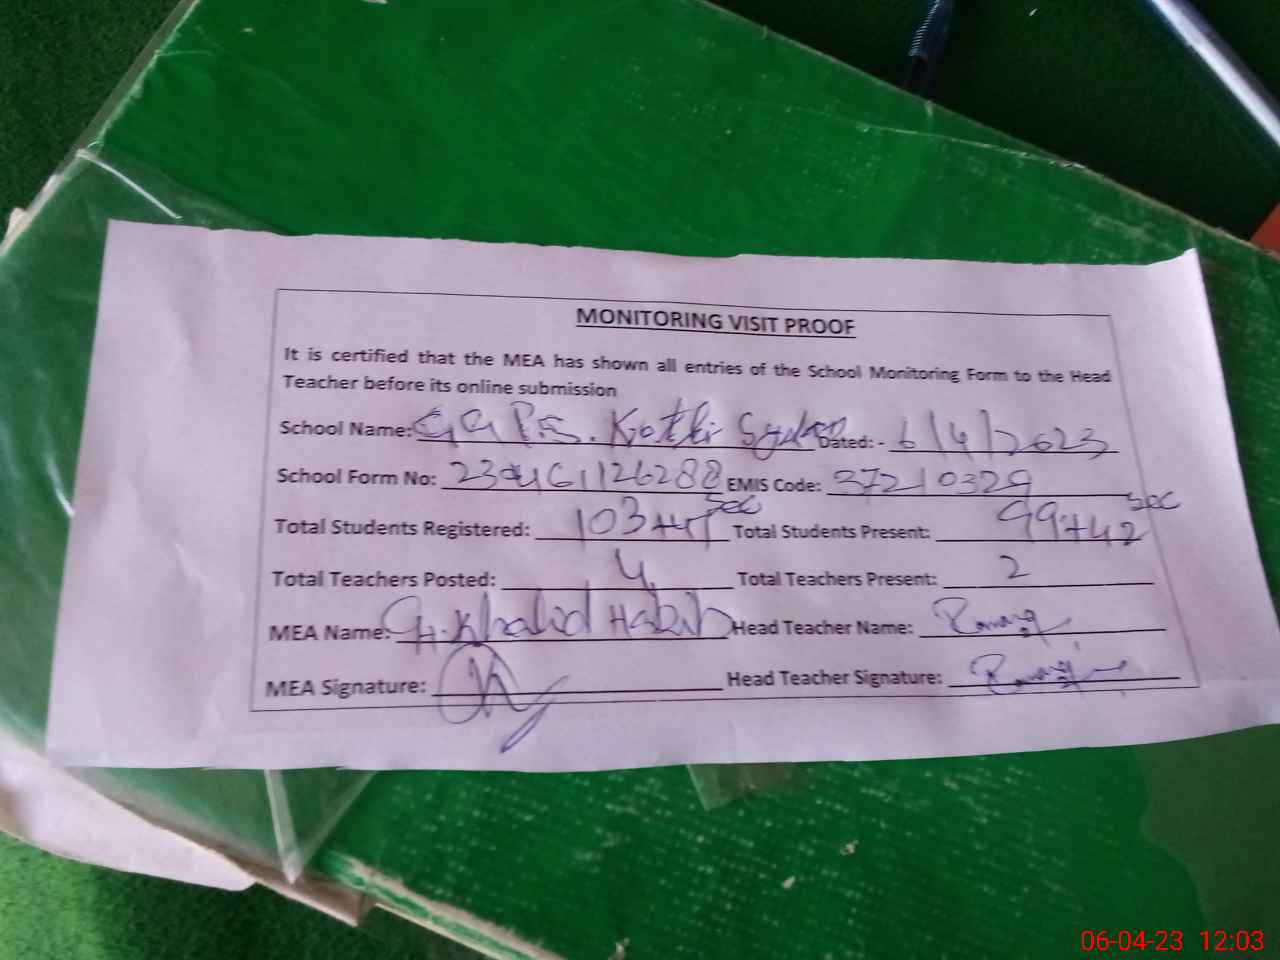 MONITORING VISIT PROOF
It is certified that the MEA has shown all entries of the School Monitoring Form to the Head
Teacher before its online submission
School Name: GGPS. Kotli Dated: - 6/4/2023
School Form No: EMIS Code: 37210329
Total Students Registered: 103+ Sec Total Students Present: 99+42 Sec
Total Teachers Posted: 4 Total Teachers Present: 2
MEA Name: Ch. Khalid Habib Head Teacher Name:
MEA Signature: Head Teacher Signature:
06-04-23 12:03